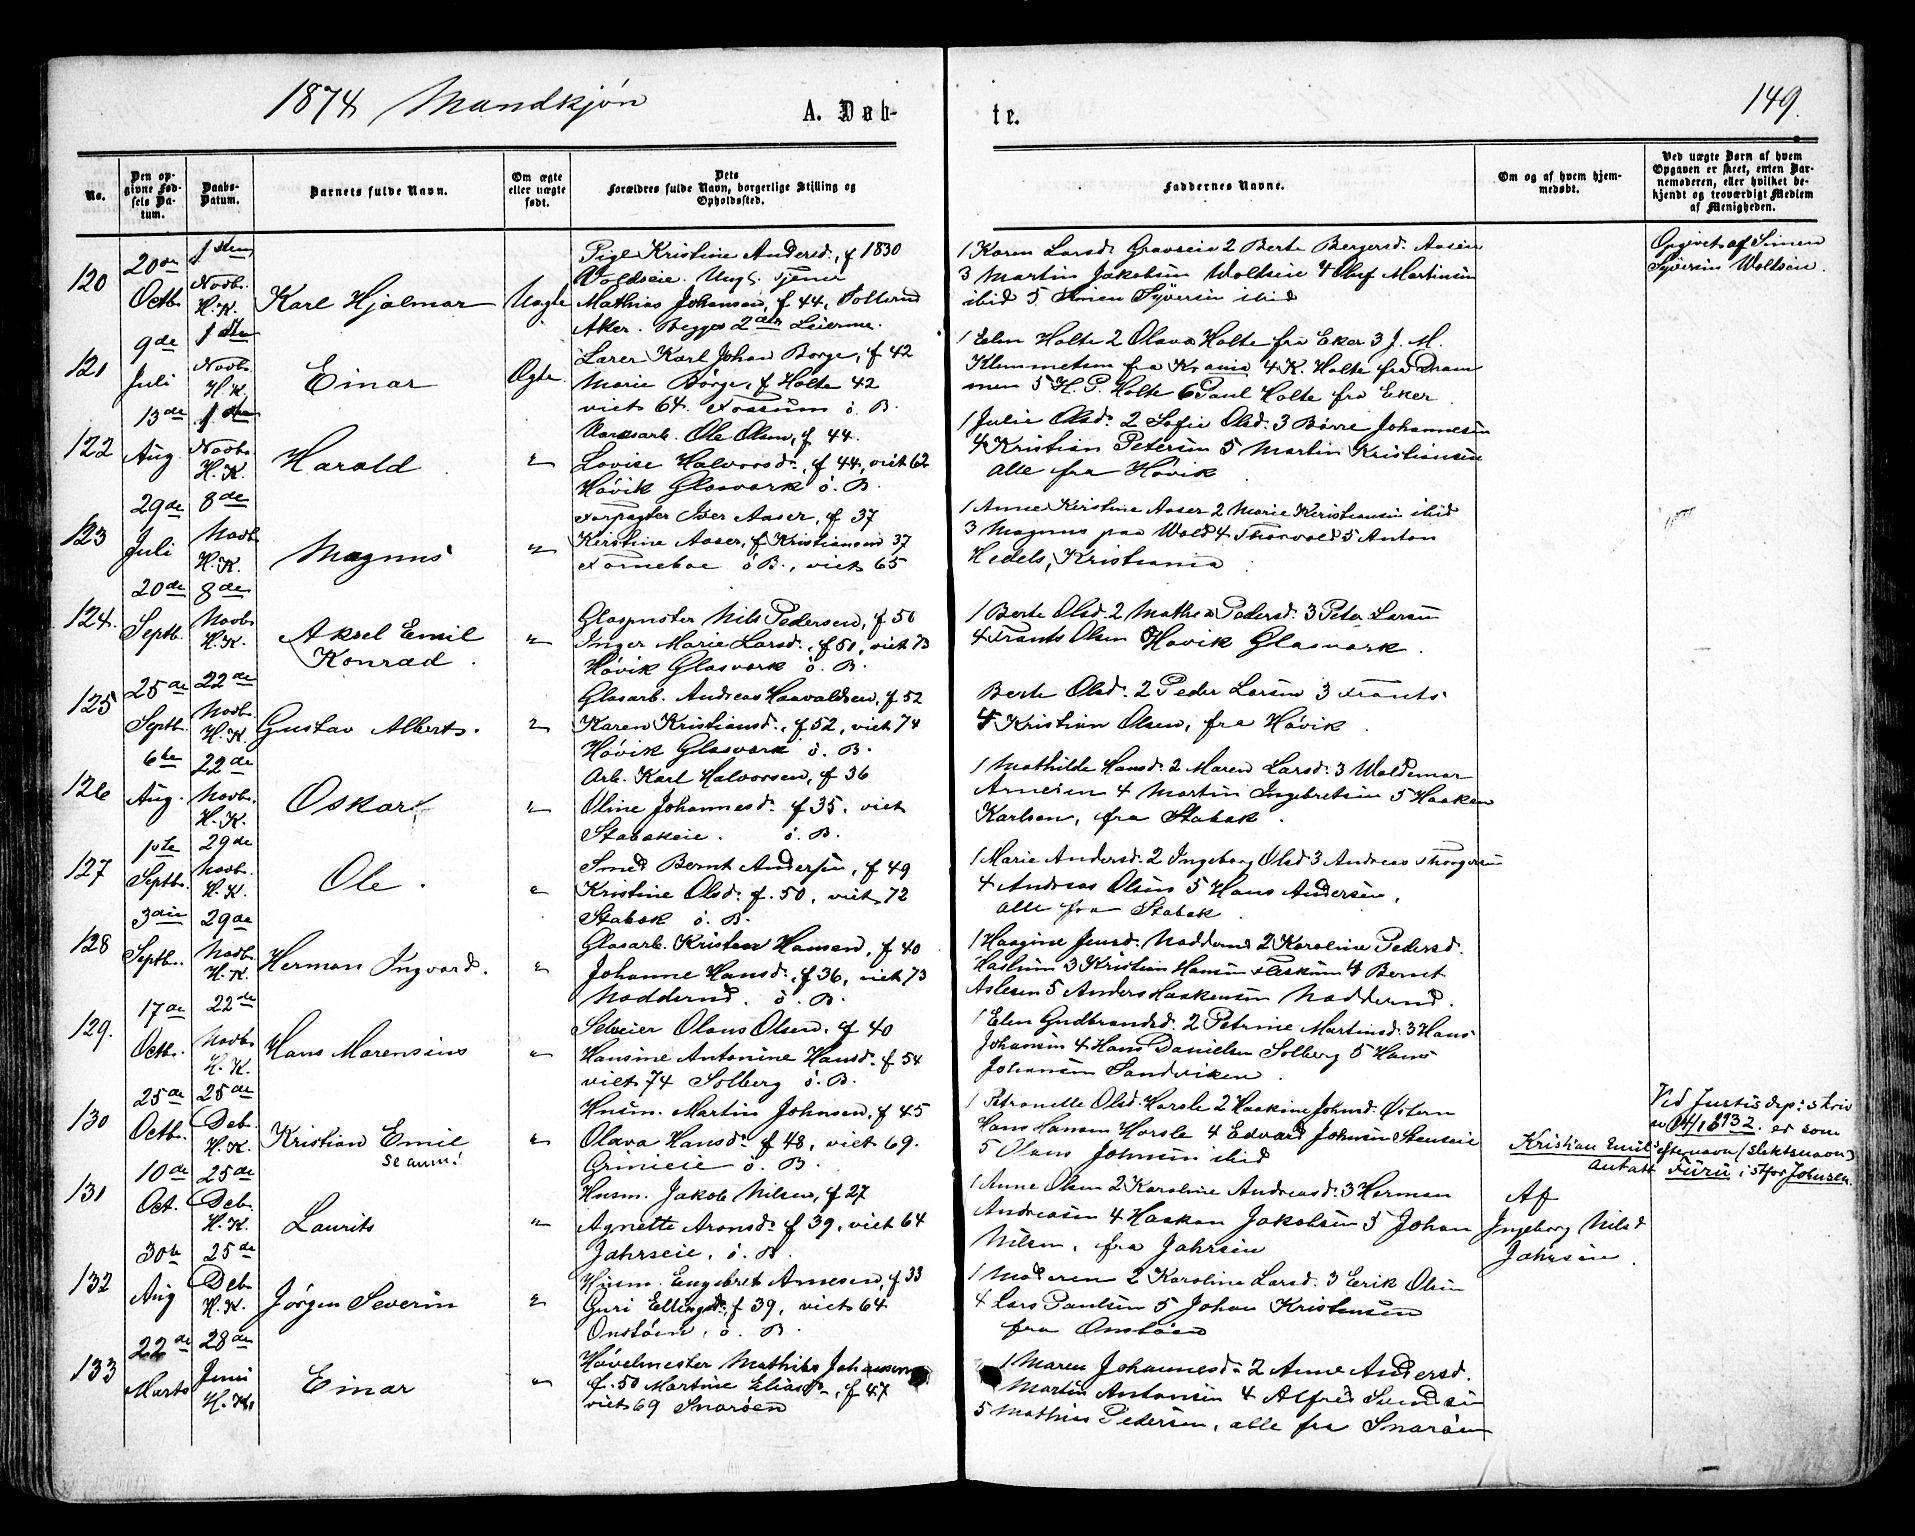 1874 Mandkjøn A. Døb-
te. 149.
No.
Den op-
givne Fød-
sels Da-
tum.
Daabs-
Datum.
Barnets fulde Navn.
Om ægte
eller uægte
født.
Dets
Forældres fulde Navn, borgerlige Stilling og
Opholdssted.
Faddernes Navne.
Om og af hvem hjem-
medøbt.
Ved uægte Børn af hvem
Opgaven er skeet, enten Bar-
nemoderen, eller hvilket be-
kjendt og troværdigt Medlem
af Menigheden.
120
20de
Octb.
1ste
Novb.
H. K.
Karl Hjalmar
Uægte
Pige Kristine Andersd., f 1830
Ungk. Tjener
Mathias Johansen, f 44, Sollerud
Aker. Begges 2det Leierm.
1 Karen Larsd. 2 Berte Bergersd. Aasen
3 Martin Jakobsen Woldseie 4 Oluf Martinsen
ibid 5 Simen Syversen ibid
Opgivet af Simen
Syversen Woldseie.
121
9de
Juli
1ste
Novb.
H. K.
Einar
Ægte
Lærer Karl Johan Borge, f 42
Marie Børge, f Holte 42
viet 64. Fossum ö. B.
1 Elen Holte 2 Olava Holte fra Eker 3 J. M.
Klemmetsen fra Krania 4 K. Holte fra Dram-
men 5 H. P. Holte 6 Paul Holte fra Eker
122
13de
Aug.
1ste
Novb.
H. K.
Harald
"
Værksarb. Ole Olsen, f 44.
Lovise Halvorsd., f 44, viet 62
Høvik Glasværk ö. B.
1 Julie Olsd. 2 Sofie Olsd. 3 Børre Johannesen
4 Kristian Petersen 5 Martin Kristiansen
alle fra Høvik
123
29de
Juli
8de
Novb.
H. K.
Magnus
"
Forpagter Iver Aaser, f 37
Kirstine Aaser, f Kristiansen 37
Forneboe ö B., viet 65
1 Anne Kirstine Aaser 2 Marie Kristiansen ibid
3 Magnus paa Wold 4 Thorvald 5 Anton
Hedels, Kristiania
124.
20de
Septb.
8de
Novb.
H. K.
Aksel Emil
Konrad.
"
Glaspuster Nils Pedersen, f 50
Inger Marie Larsd., f 50, viet 73
Høvik Glasværk ö. B.
1 Berte Olsd. 2 Mathea Pedersd. 3 Peter Larsen
4 Frants Olsen Høvik Glasværk.
125
25de
Septb.
22de
Novb.
H. K.
Gustav Albert.
"
Glasarb. Andreas Haavaldsen, f 52
Karen Kristiansd., f 52, viet 74
Høvik Glasværk ö. B.
Berte Olsd. 2 Peder Larsen 3 Frants
4 Kristian Olsen, fra Høvik
126
6te
Aug.
22de
Novb.
H. K.
Oskar
"
Arb. Karl Halvorsen, f 36
Oline Johannesd. f 35, viet
Stabækeie. ö. B.
1 Mathilde Hansd. 2 Maren Larsd. 3 Waldemar
Arnesen 4 Martin Ingebretsen 5 Haaken
Karlsen, fra Stabæk.
127
1ste
Septb.
29de
Novb.
H. K.
Ole.
"
Smed Bernt Andersen, f 49
Kristine Olsd. f. 50, viet 72
Stabæk ö. B.
1 Marie Andersd. 2 Ingeborg Olsd 3 Andreas Thorgersen
4 Andreas Olsen 5 Hans Andersen,
alle fra Stabæk
128
3die
Septb.
29de
Novb.
H. K.
Herman Ingvard.
"
Glasarb. Kristen Hansen, f 40
Johanne Hansd., f 36, viet 73
Nadderud. ö. B.
1 Haagine Jensd. Nadderud 2 Karoline Pedersd.
Haslum 3 Kristian Hansen Fleskum 4 Bernt
Aslesen 5 Anders Haakensen Nadderud.
129.
17de
Octb.
22de
Novb.
H. K.
Hans Marensius
"
Selveier Olaus Olsen. f 40
Hansine Antonine Hansd. f 54
viet 74 Solberg ö. B.
1 Elen Gudbrandsd. 2 Petrine Martinsd. 3 Hans
Johansen 4 Hans Danielsen Solberg 5 Hans
Johansen Sandviken.
130
25de
Octb.
25de
Deb.
H. K.
Kristian Emil
se anm!
"
Husm. Martin Johnsen, f 45
Olava Hansd. f 48, viet 69.
Grinieie ö. B.
1 Petronelle Olsd. Horsle 2 Haakine Johnsd. Østern
Hans Hansen Horsle 4 Edvard Johnsen Stenseie
5 Olaus Johnsen ibid
Ved Justisdep: skriv
av 04/1 1932. er som
Kristian Emil's efternavn (slektsnavn)
antatt Furu i stfor Johnsen.
131
10de
Oct.
25de
Deb.
H. K.
Laurits
"
Husm. Jakob Nilsen, f 27
Agnette Aronsd. f 39, viet 64
Jahrseie, ö. B.
1 Anne Olsen 2 Karoline Andreasd. 3 Herman
Andreasen 4 Haakon Jakobsen 5 Johan
Nilsen, fra Jahrseie
Af
Ingeborg Nilsd
Jahrseie.
132
30te
Aug
25de
Deb.
H. K.
Jørgen Severin
"
Husm. Engebret Arnesen, f 33
Guri Ellingsd., f 39, viet 64
Onstøen, ö. B.
1 Moderen 2 Karoline Larsd. 3 Erik Olsen
4 Lars Paulsen 5 Johan Kristensen
fra Onstøen
133
22de
Marts
28de
Juni
H. K.
Einar
"
Høvelmester Mathias Johannesen
f. 50 Martine Eliasd., f 47
viet 69 Snarøen
1 Maren Johannesd. 2 Anne Andersd.
Martin Antonsen 4 Alfred
5 Mathias Pedersen, alle fra Snarøen